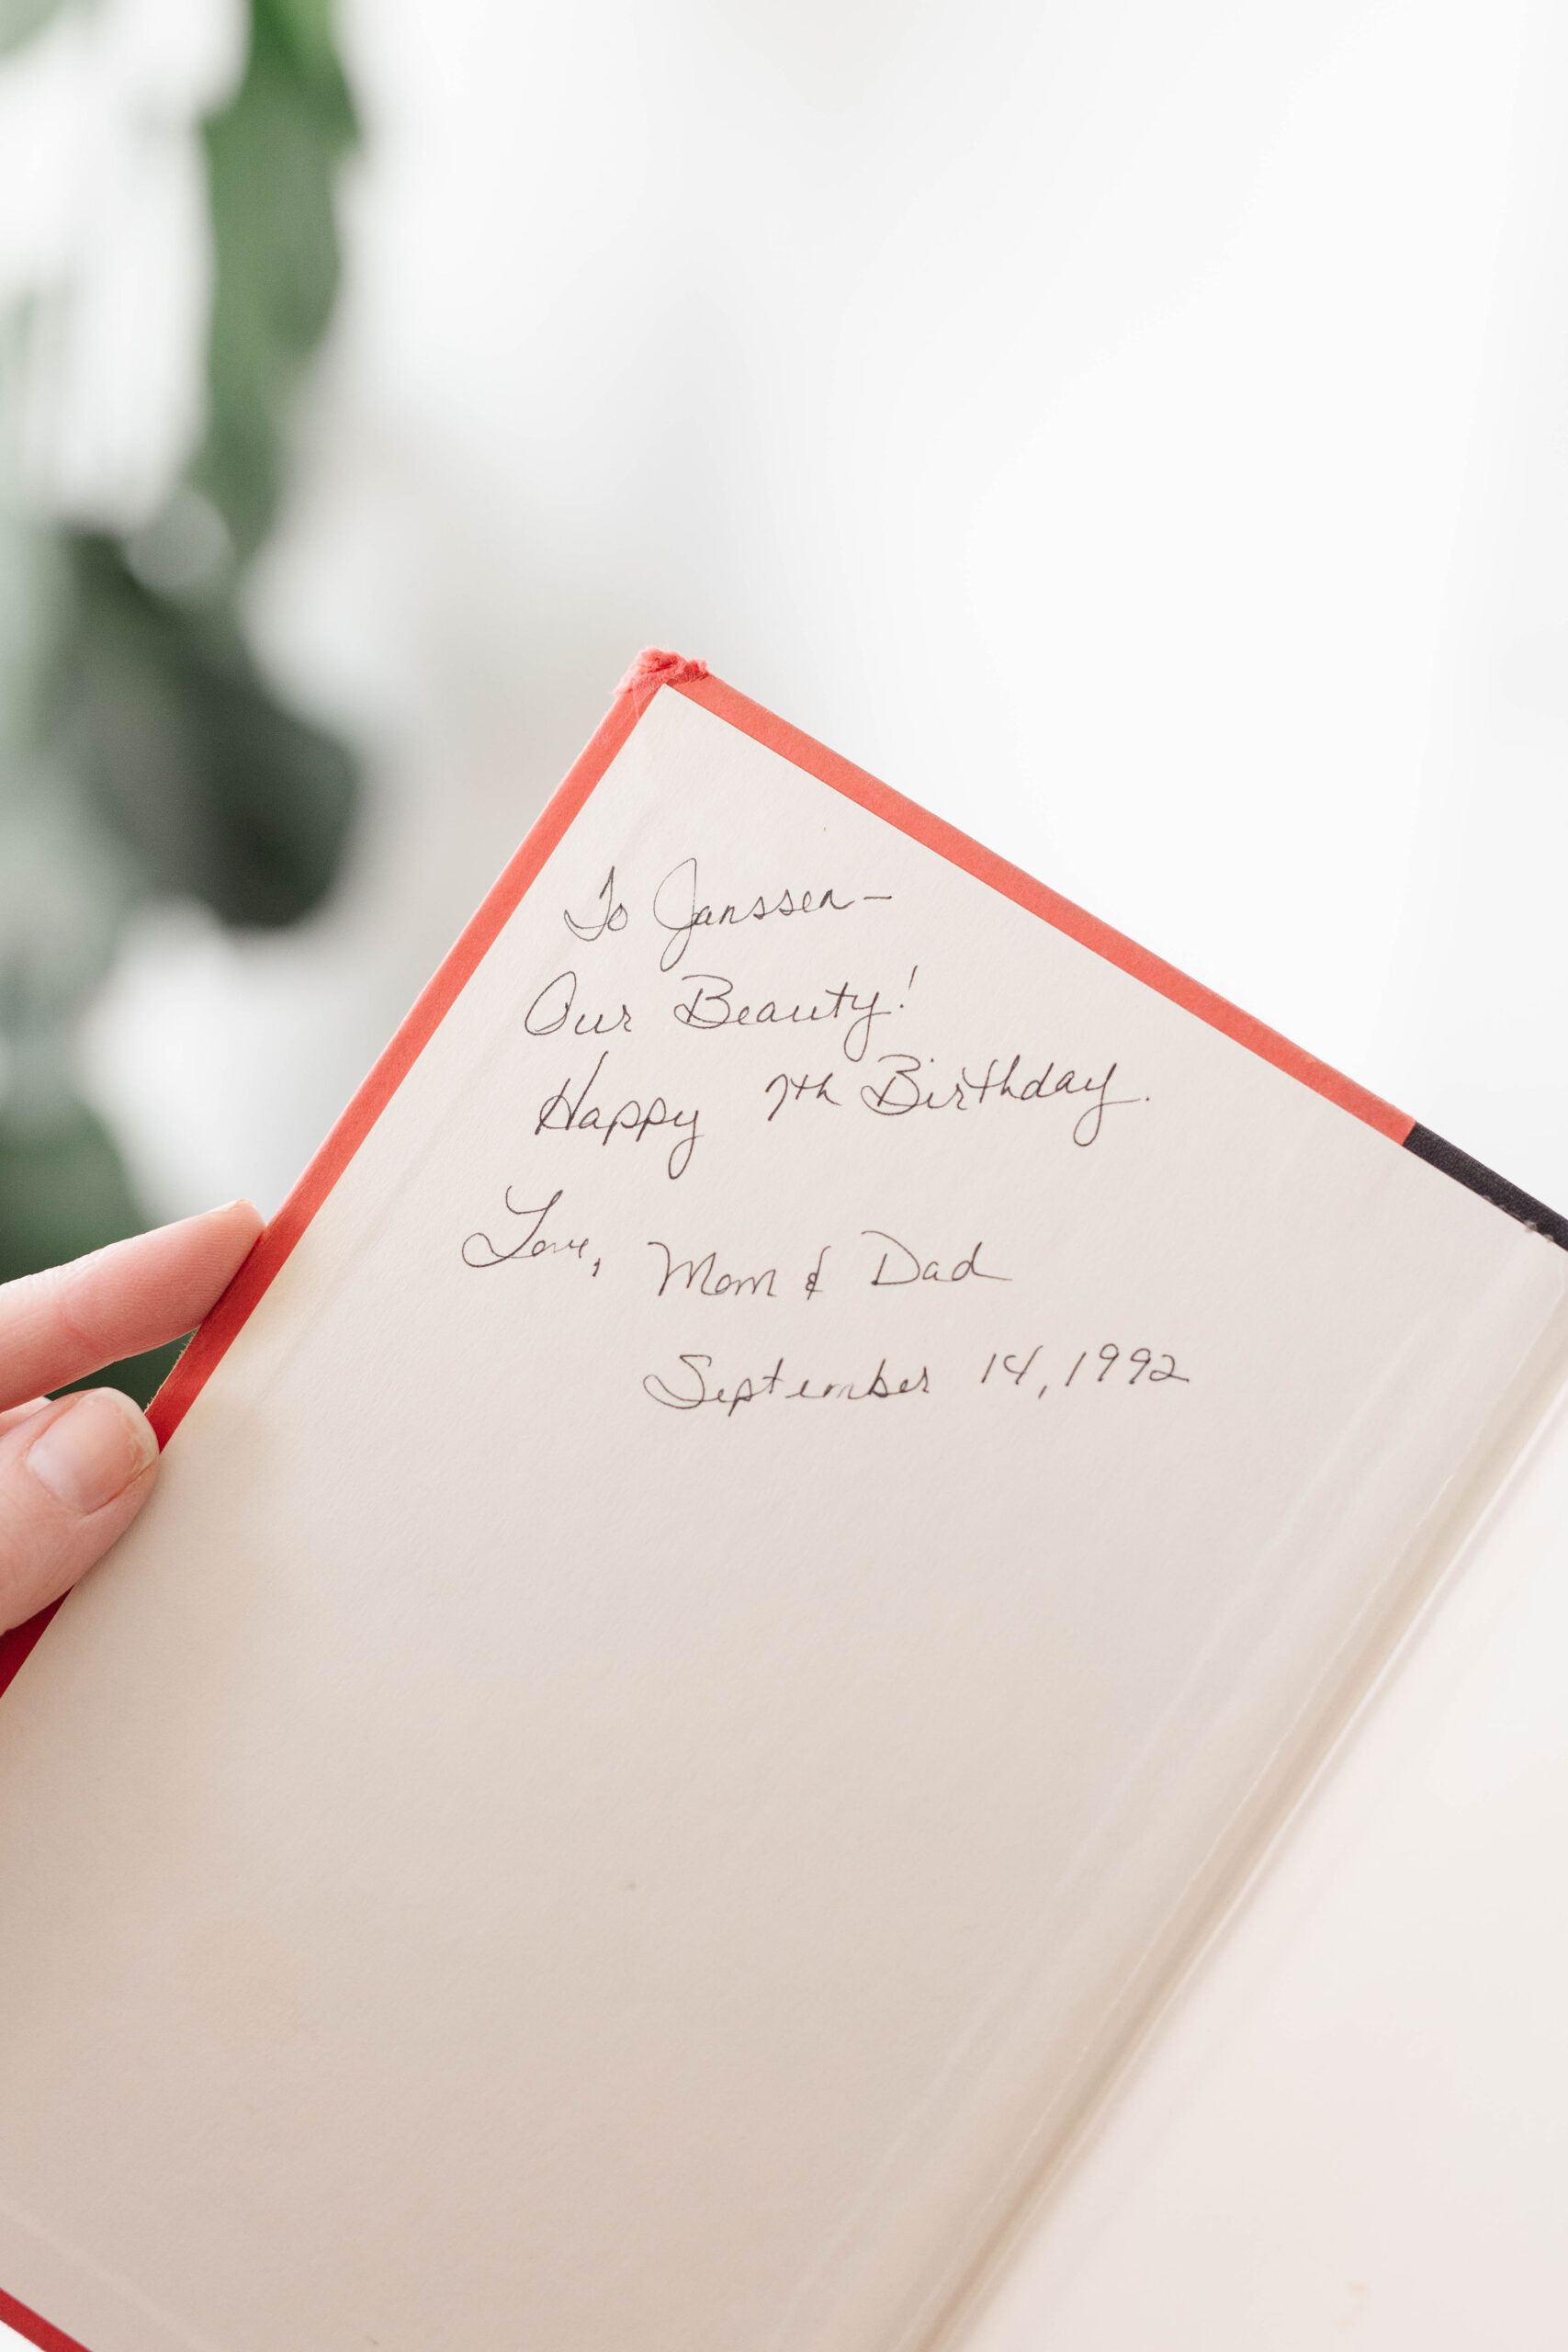 To Janssen-
Our Beauty!
Happy 7th Birthday.
Love, Mom & Dad
September 14, 1992